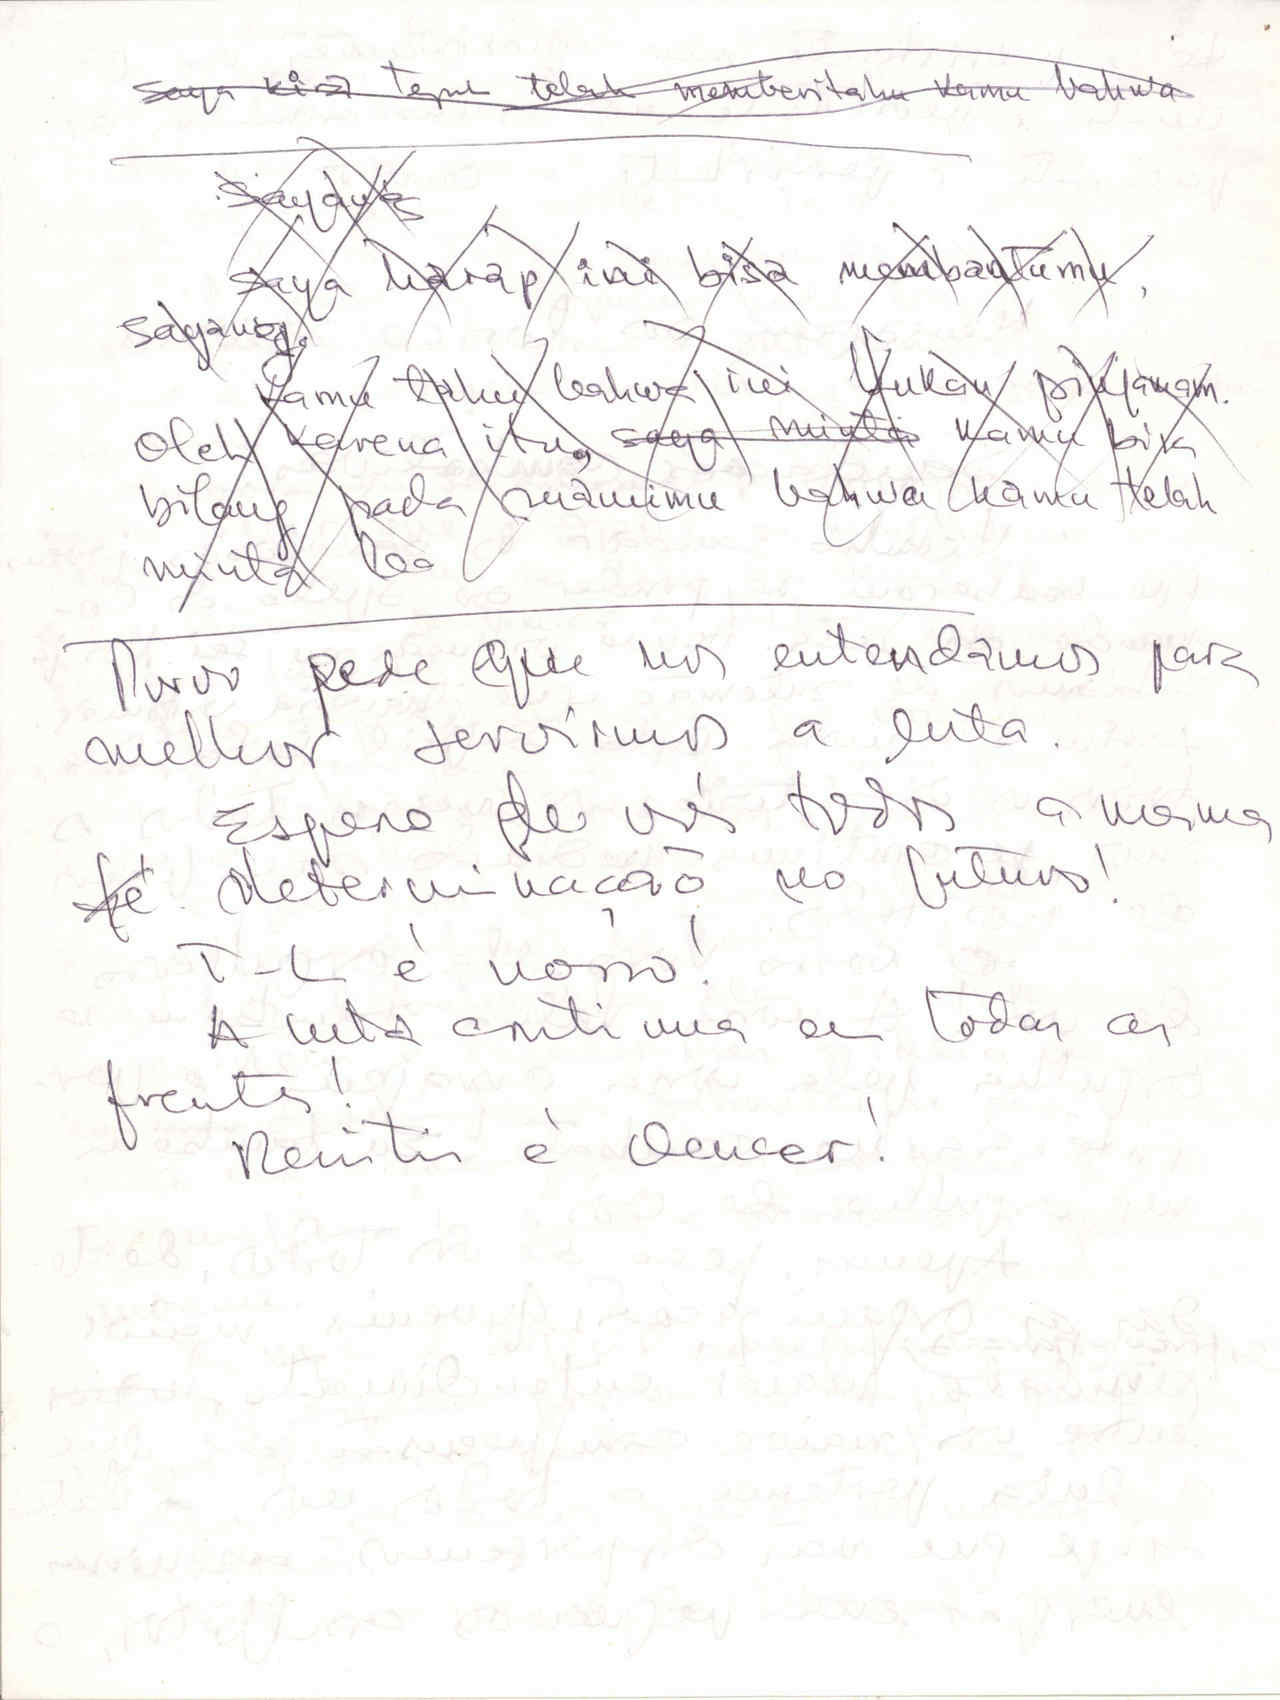 saya kira tepat telah memberitahu kamu bahwa
Sayang
saya harap ini bisa membantumu,
sayang.
Kamu tahu bahwa ini bukan pinjaman.
Oleh karena itu, saya minta kamu bisa
bilang pada mamimu bahwa kamu telah
minta
Povo pede que nos entendamos para
melhor servirmos a luta.
Espero de vós todos a mesma
fé determinação no futuro!
T-L é nosso!
A luta continua em todas as
frentes!
Resistir é vencer!